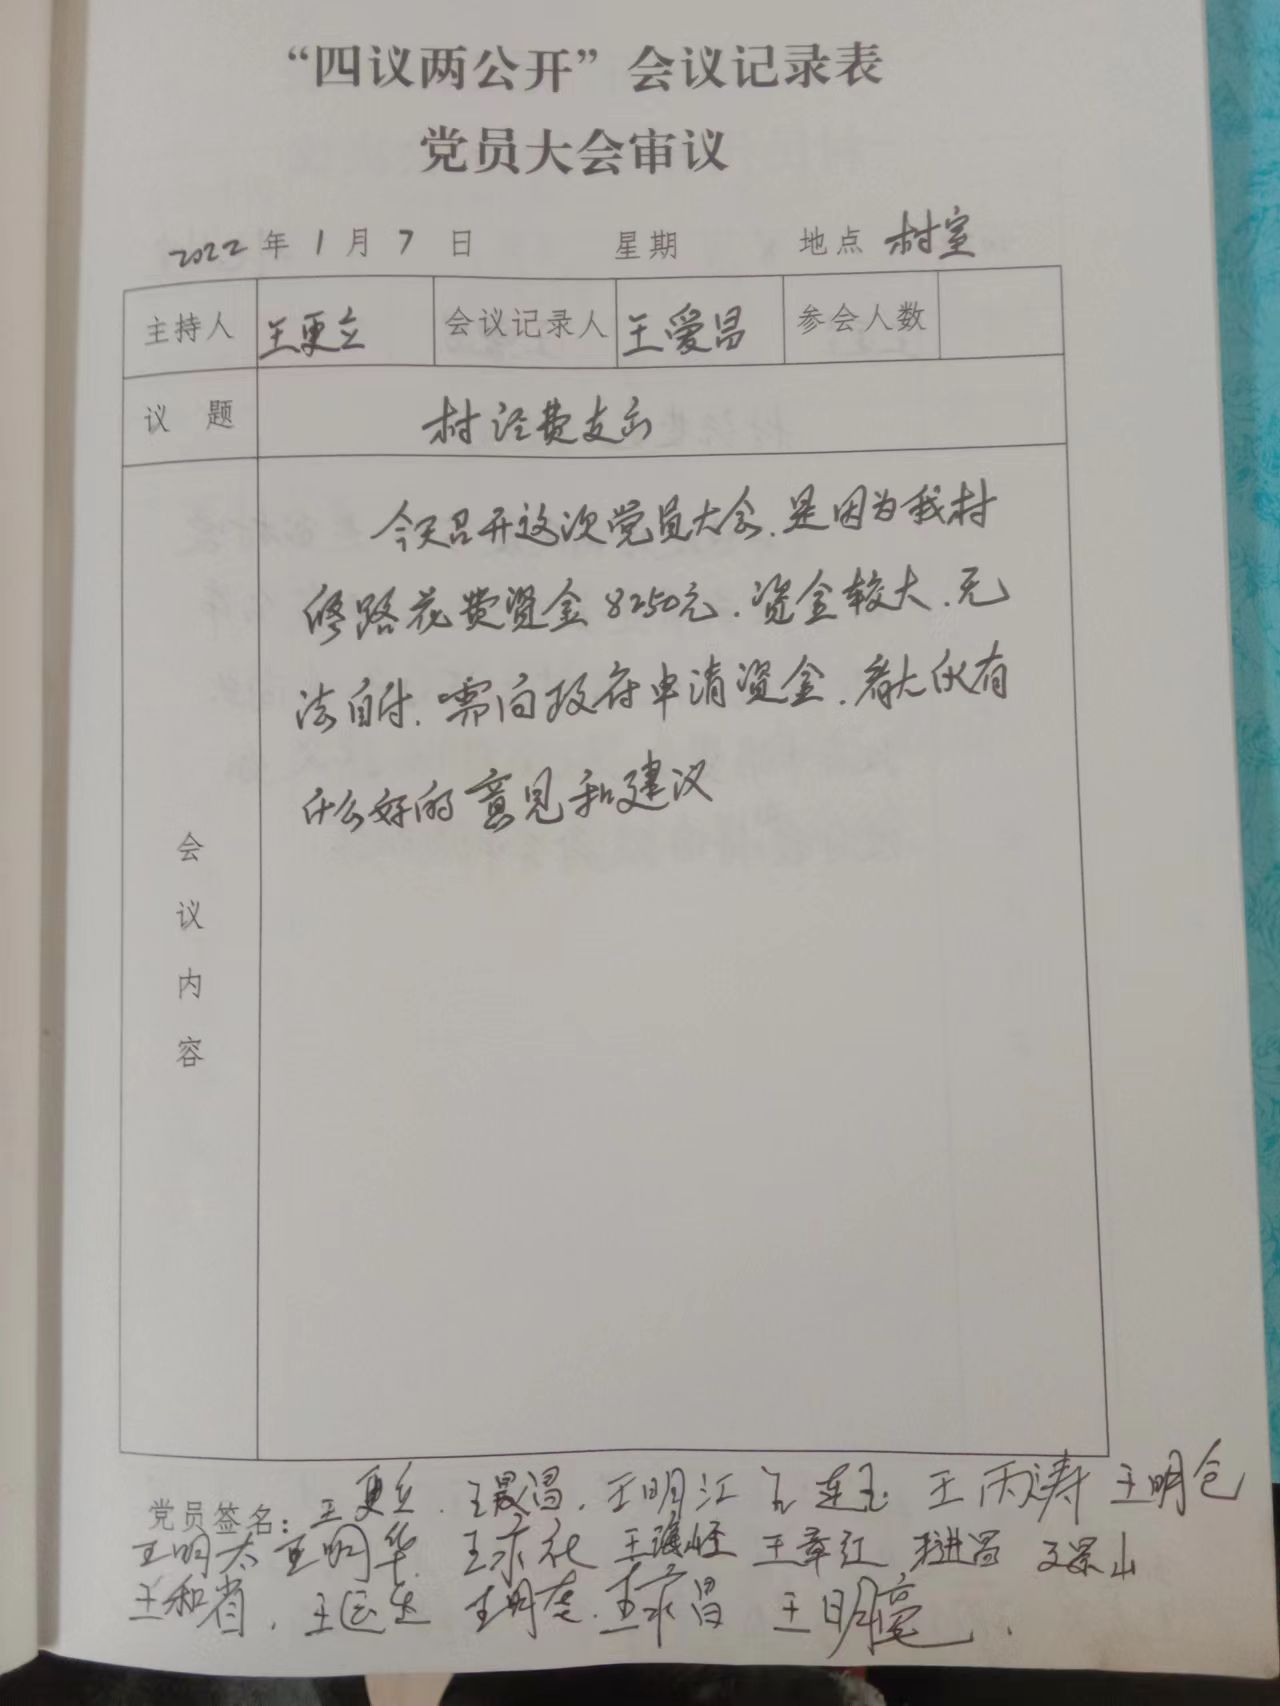 “四议两公开”会议记录表
党员大会审议
2022年1月7日 星期 地点 村室
主持人 王更立 会议记录人 王爱昌 参会人数
议题 村经费支出
会议内容
今天召开这次党员大会.是因为我村
修路花费资金8250元.资金较大.无
法自付.需向政府申请资金.看大伙有
什么好的意见和建议
党员签名：王更立.王晨昌.王明江 王连玉 王丙涛 王明仓
王明太 王明华 王章红 王进昌
王和省.王医生 王明亮.